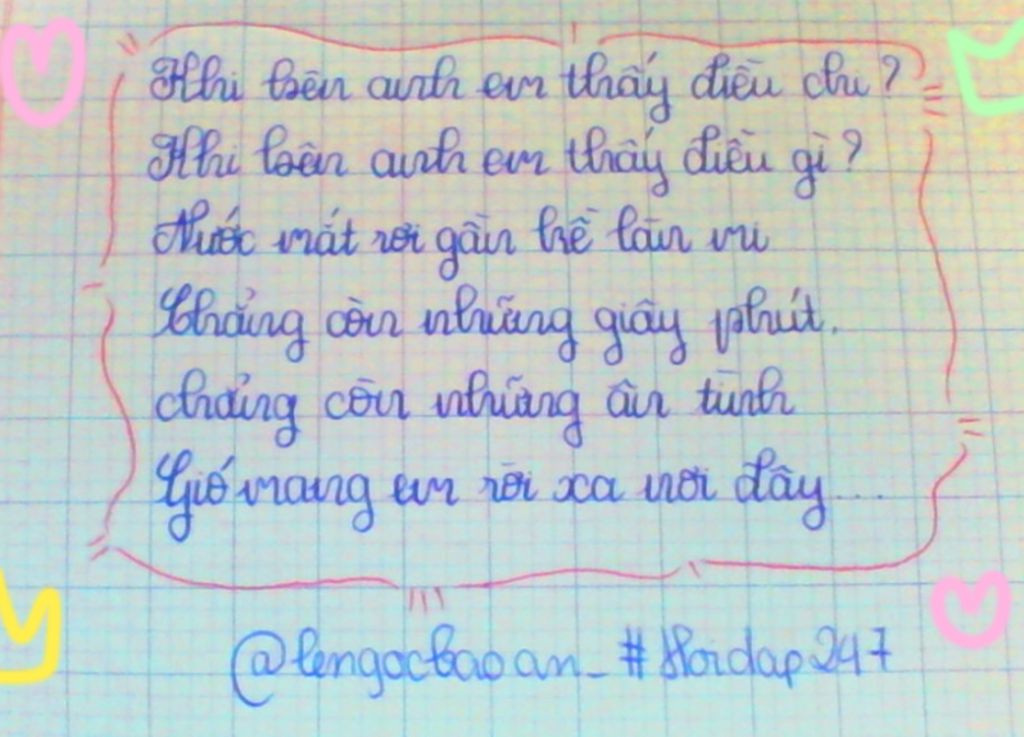 Khi bên anh em thấy điều chi?
Khi bên anh em thấy điều gì?
Nước mắt rơi gần kề làn mi
Chẳng còn những giây phút.
chẳng còn những ân tình
Gió mang em rời xa nơi đây...
@lengocbaoan_#Hoidap247